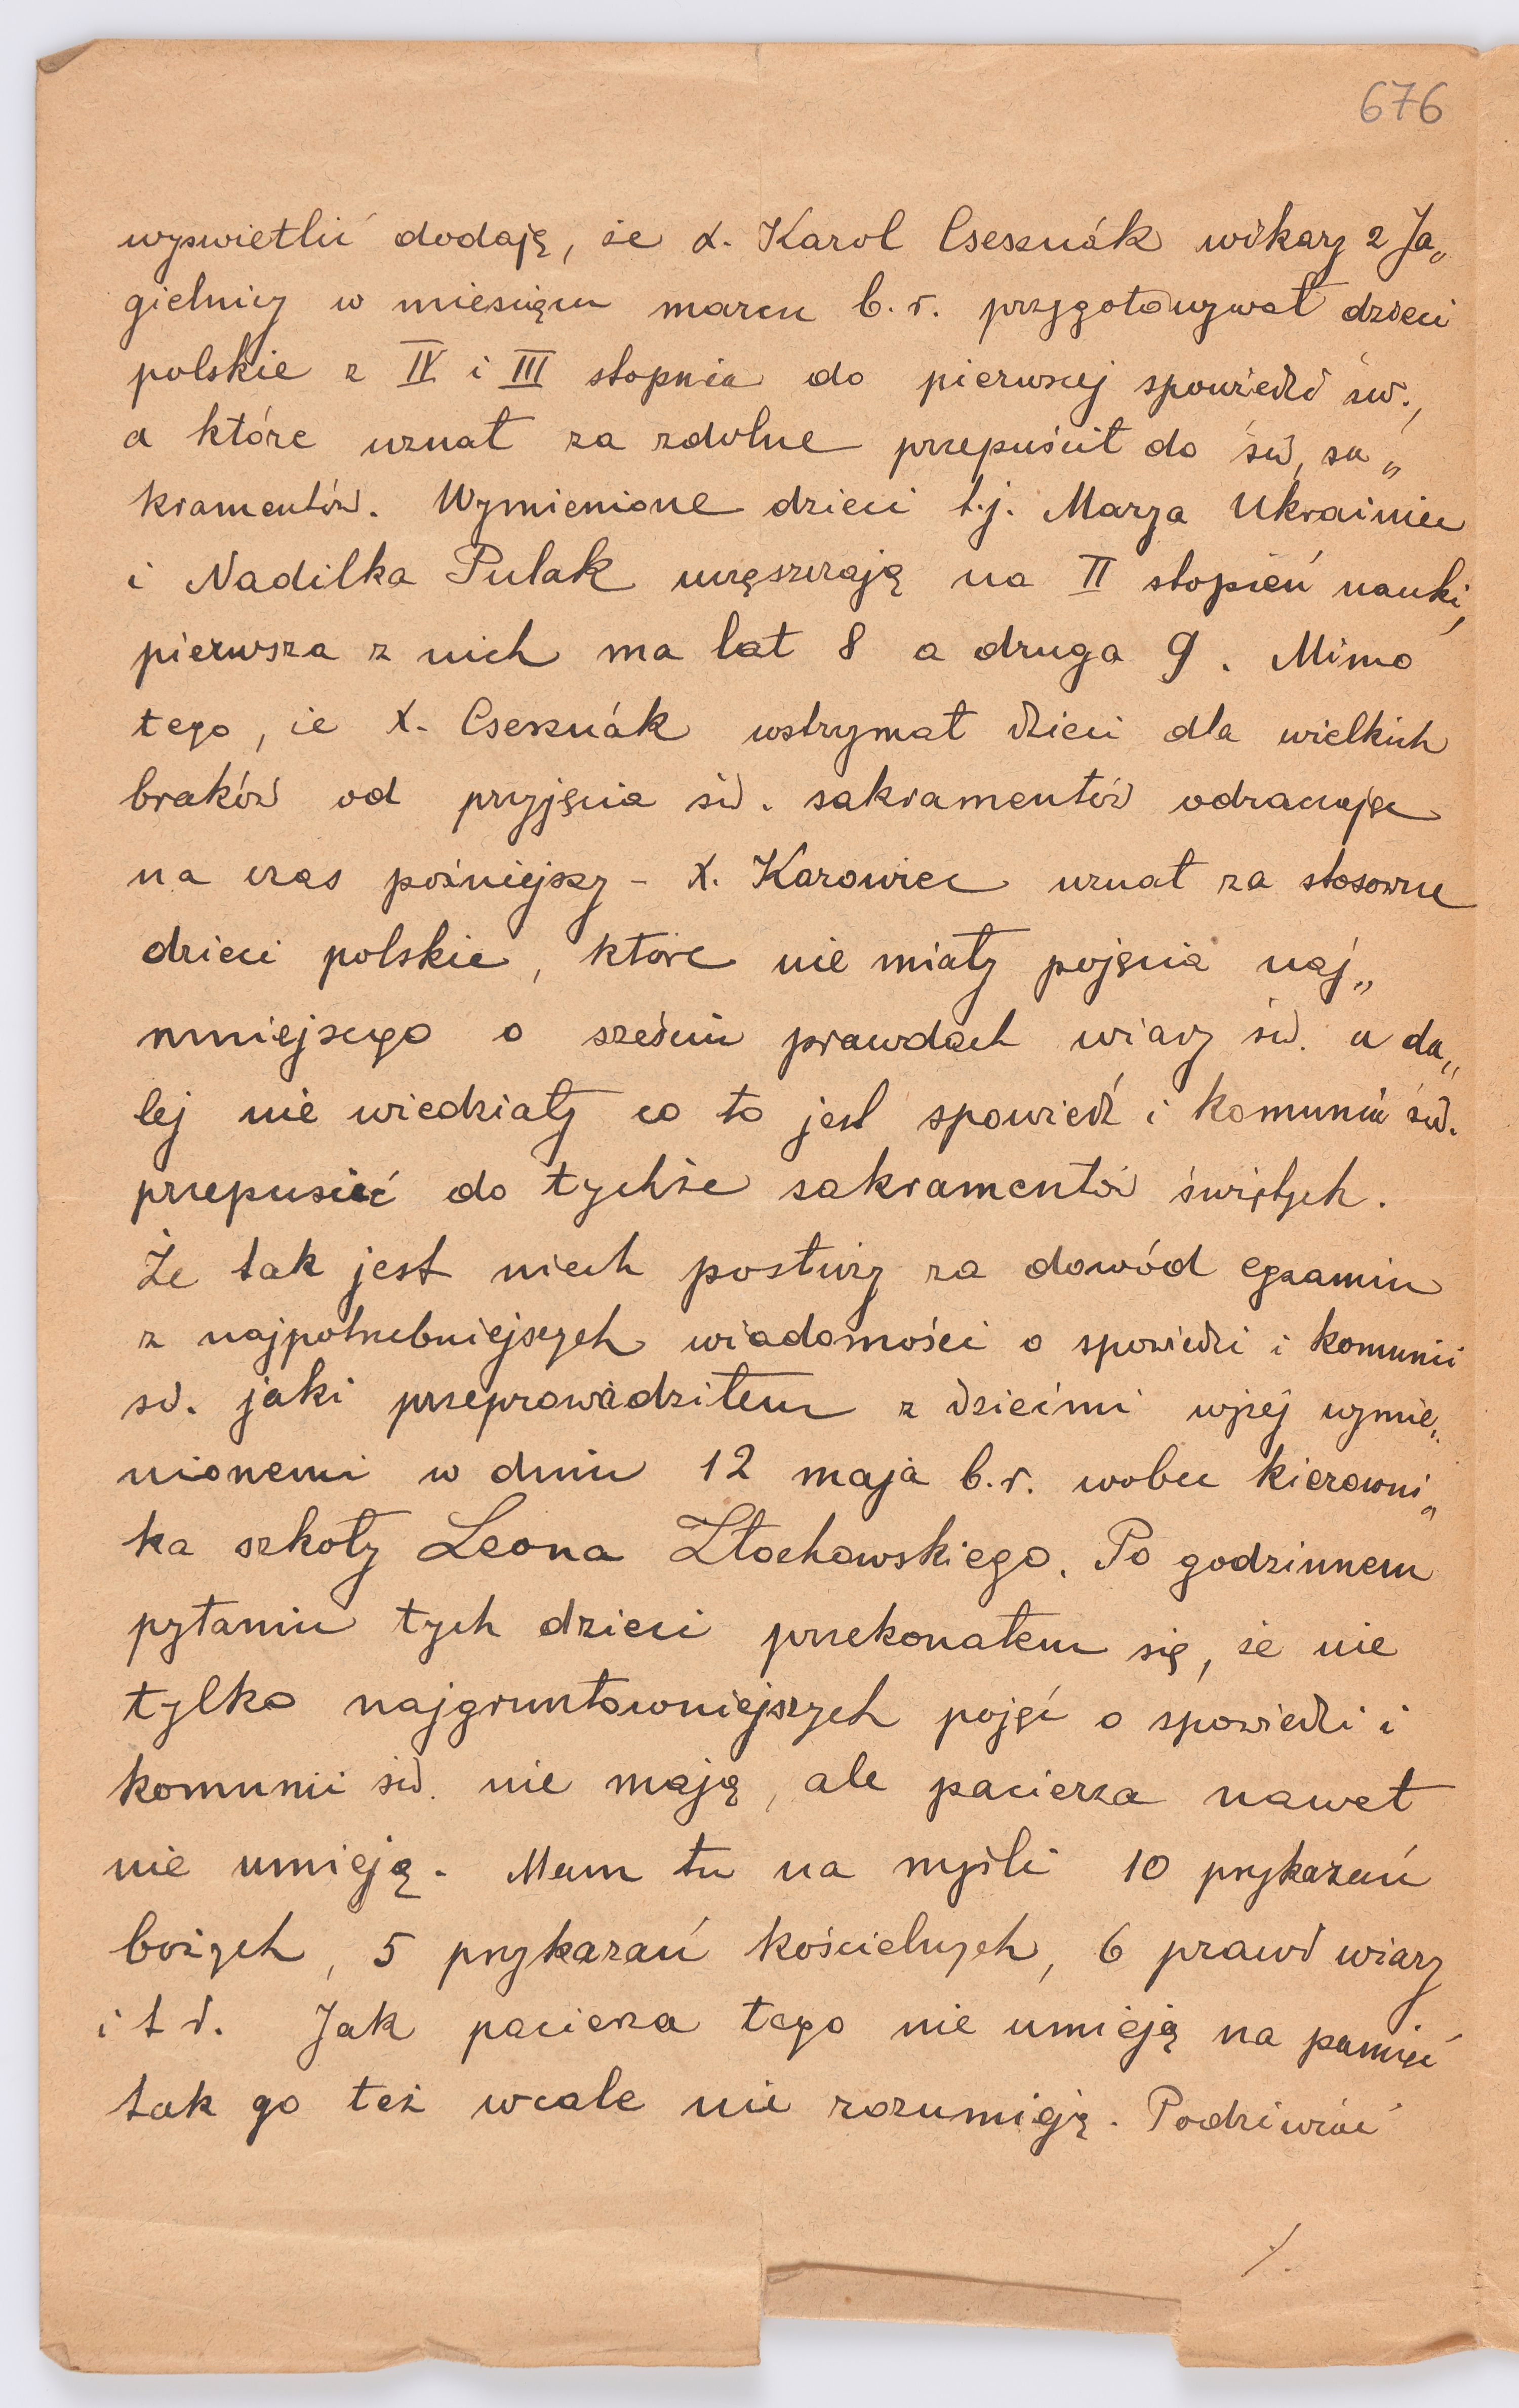 676
wyswietlić dodaję, że X. Karol Csesznák wikary z Ja„
gielnicy w miesiącu marcu b.r. przygotowywał dzieci
polskie z IV i III stopnia do pierwszej spowiedzi św.,
a które uznał za zdolne przepuścił do św. sa„
kramentów. Wymienione dzieci t.j. Marya Ukrainiec
i Nadilka Pulak uczęszczają na II stopień nauki,
pierwsza z nich ma lat 8 a druga 9. Mimo
tego, że X. Csesznák wstrzymał dzieci dla wielkich
braków od przyjęcia św. sakramentów odraczając
na czas poźniejszy - X. Karowiec uznał za stosowne
dzieci polskie, które nie miały pojęcia naj„
mniejszego o sześciu prawdach wiary św. a da„
lej nie wiedziały co to jest spowiedź i komunia św.
przepuścić do tychże sakramentów świętych.
Że tak jest niech posłuży za dowód egzamin
z najpotrzebniejszych wiadomości o spowiedzi i komunii
św. jaki przeprowadziłem z dziećmi wyżej wymie„
nionemi w dniu 12 maja b.r. wobec kierowni„
ka szkoły Leona Złochowskiego. Po godzinnem
pytaniu tych dzieci przekonałem się, że nie
tylko najgruntowniejszych pojęć o spowiedzi i
komunii św. nie mają, ale pacierza nawet
nie umieją. Mam tu na myśli 10 przykazań
bożych, 5 przykazań kościelnych, 6 prawd wiary
i t d. Jak pacierza tego nie umieją na pamięć
tak go też wcale nie rozumieją. Podziwiać
./.